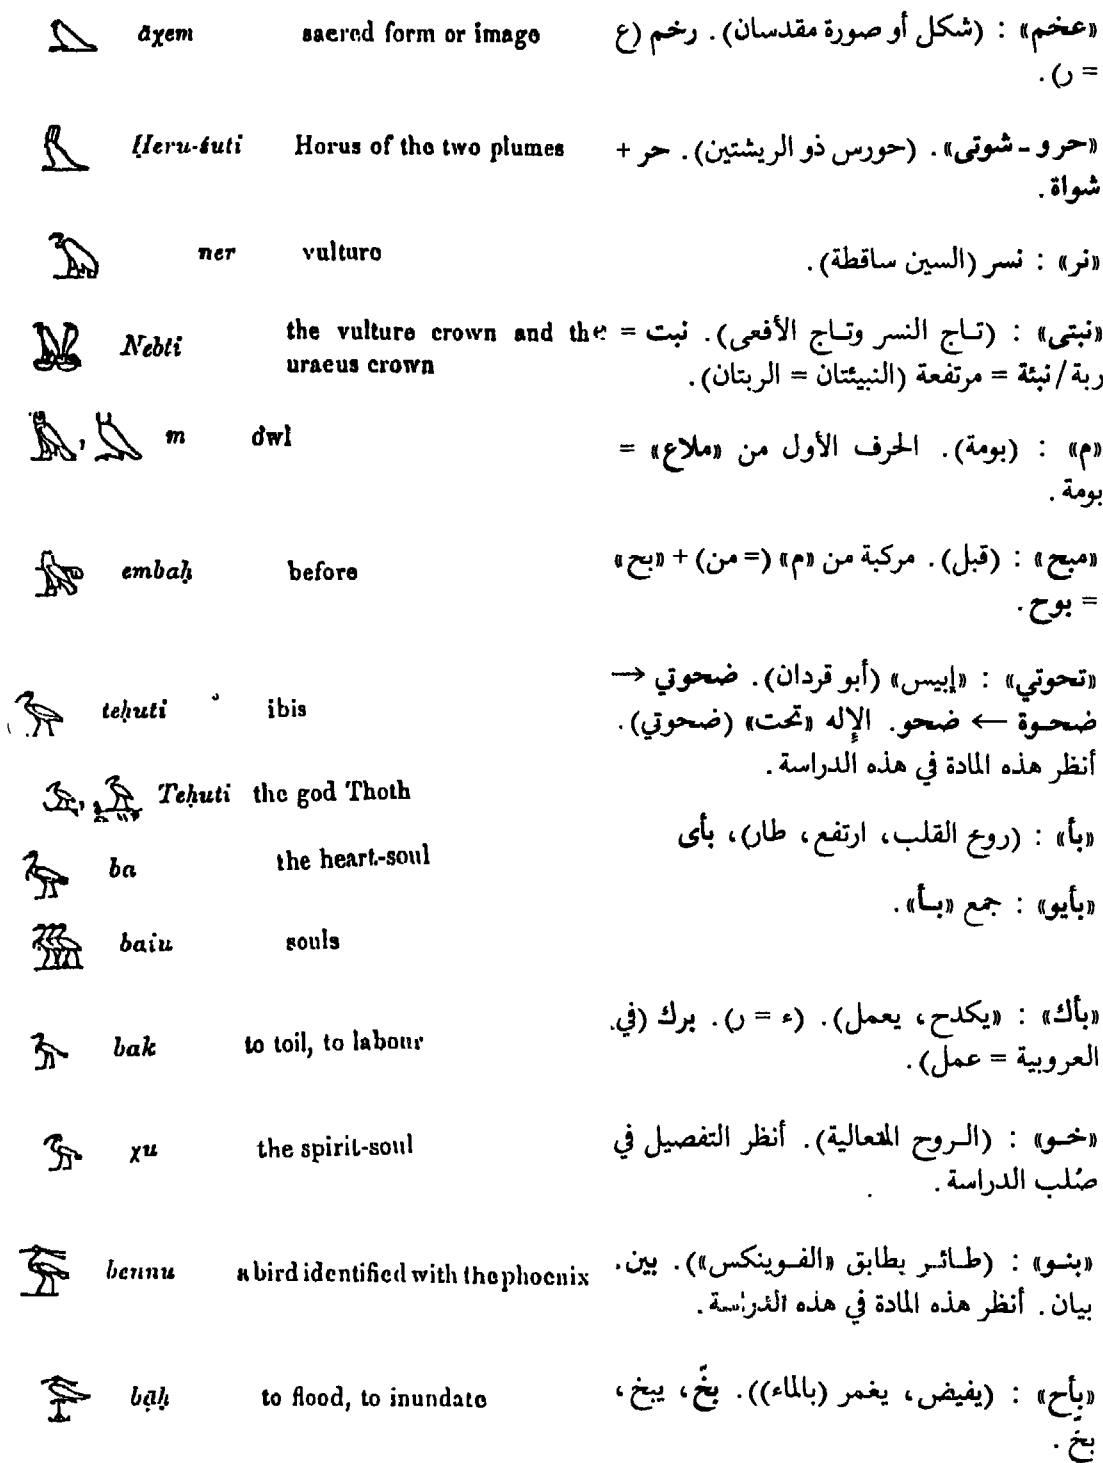 āχem sacred form or image «عخم» : (شكل أو صورة مقدسان). رخم (ع
= ر).
Ḥeru-śuti Horus of the two plumes «حرو - شوتى». (حورس ذو الريشتين). حر +
شواة.
ner vulture «نر» : نسر (السين ساقطة).
Nebti the vulture crown and the «نبتى» : (تاج النسر وتاج الأفعى). نبت =
uraeus crown ربة/نبئة = مرتفعة (النبيئتان = الربتان).
m owl «م» : (بومة). الحرف الأول من «ملاع» =
بومة.
embaḥ before «مبح» : (قبل). مركبة من «م» (= من) + «بح»
= بوح.
teḥuti ibis «تحوتي» : «إيبس» (أبو قردان). ضحوتي →
ضحوة ← ضحو. الإله «تحت» (ضحوتي).
أنظر هذه المادة في هذه الدراسة.
Teḥuti the god Thoth
ba the heart-soul «بأ» : (روح القلب، ارتفع، طار)، بأى
«بأيو» : جمع «بأ».
baiu souls
bak to toil, to labour «بأك» : «يكدح، يعمل). (ء = ر). برك (في
العروبية = عمل).
χu the spirit-soul «خو» : (الروح المتعالية). أنظر التفصيل في
صُلب الدراسة.
bennu a bird identified with the phoenix «بنو» : (طائر يطابق «الفوينكس»). بين.
بيان. أنظر هذه المادة في هذه الدراسة.
bāḥ to flood, to inundate «بأح» : (يفيض، يغمر (بالماء)). بخّ، يبخ،
بخّ.